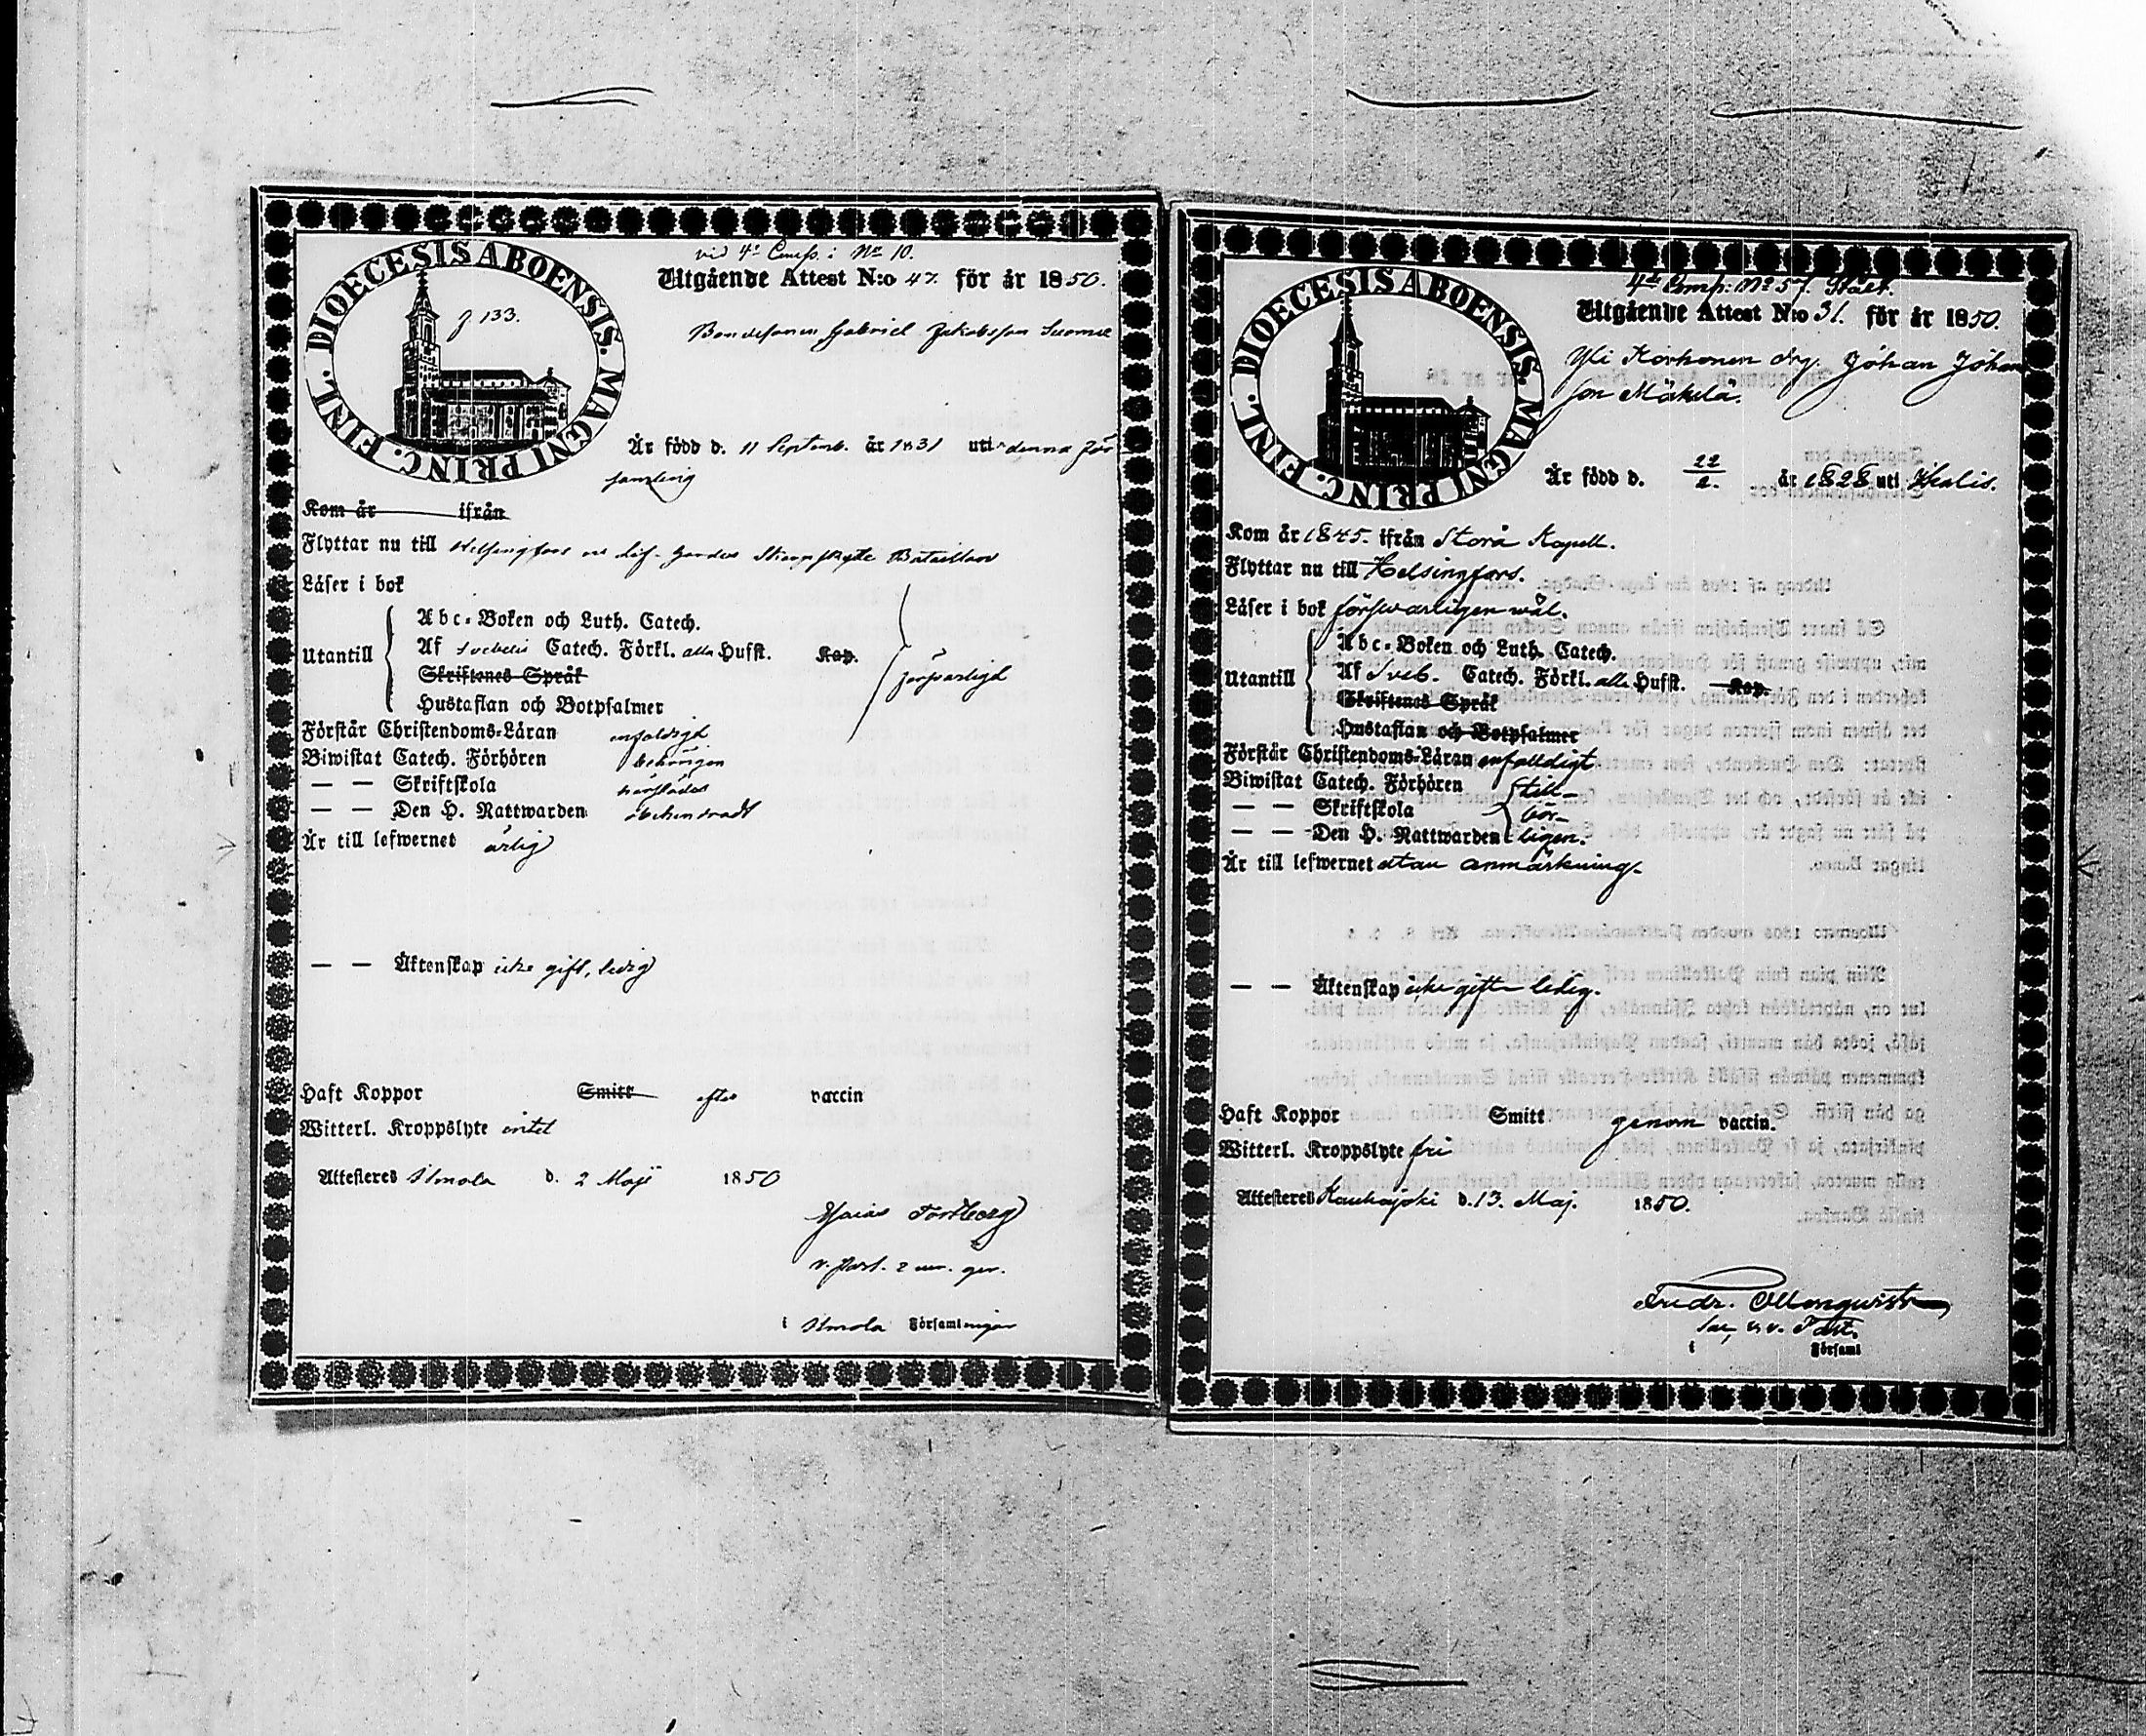 vid 4e Comp: No 10.
DIOECESIS ABOENSIS. MAGNI PRINC. FINL.
Utgående Attest N:o 47. för år 1850.
133.
Bondesonen Gabriel Jakobsson
Är född d. 11 Septemb. år 1831 uti denna För
samling
Kom år ifrån
Flyttar nu till Helsingfors Bataillon
Läser i bok
Abc-Boken och Luth. Catech.
Utantill
Af Svebelii Catech. Förkl. alla Hufst. Kap.
Skriftenes Språk
Hustaflan och Botpsalmer
försvarligt
Förstår Christendoms-Läran enfaldigt
Biwistat Catech. Förhören behörigen
— — Skriftskola
— — Den H. Nattwarden obehindradt
Är till lefwernet ärlig
— — Äktenskap icke gift, ledig
Haft Koppor Smitt efter vaccin
Witterl. Kroppslyte intet
Attesteres Ilmola d. 2 Maji 1850
Esaias
v. Past.
i Ilmola Församlingar
4de Comp: No 57.
DIOECESIS ABOENSIS. MAGNI PRINC. FINL.
Utgående Attest N:o 31. för år 1850.
Yli Korhonen drg. Johan Johan
son Mäkelä.
Är född d. 22/2. år 1828 uti Ikalis.
Kom år 1845. ifrån Storå Kapell.
Flyttar nu till Helsingfors.
Läser i bok förswarligen wäl.
Abc-Boken och Luth. Catech.
Utantill
Af Sveb. Catech. Förkl. alla Hufst. Kap.
Skriftenes Språk
Hustaflan och Botpsalmer
Förstår Christendoms-Läran enfalldigt
Biwistat Catech. Förhören till-
— — Skriftskola bör-
— — Den H. Nattwarden ligen.
Är till lefwernet utan anmärkning.
— — Äktenskap icke gift ledig.
Haft Koppor Smitt genom vaccin.
Witterl. Kroppslyte fri
Attesteres Kauhajoki d. 13. Maj. 1850.
Fredr.
i Församl